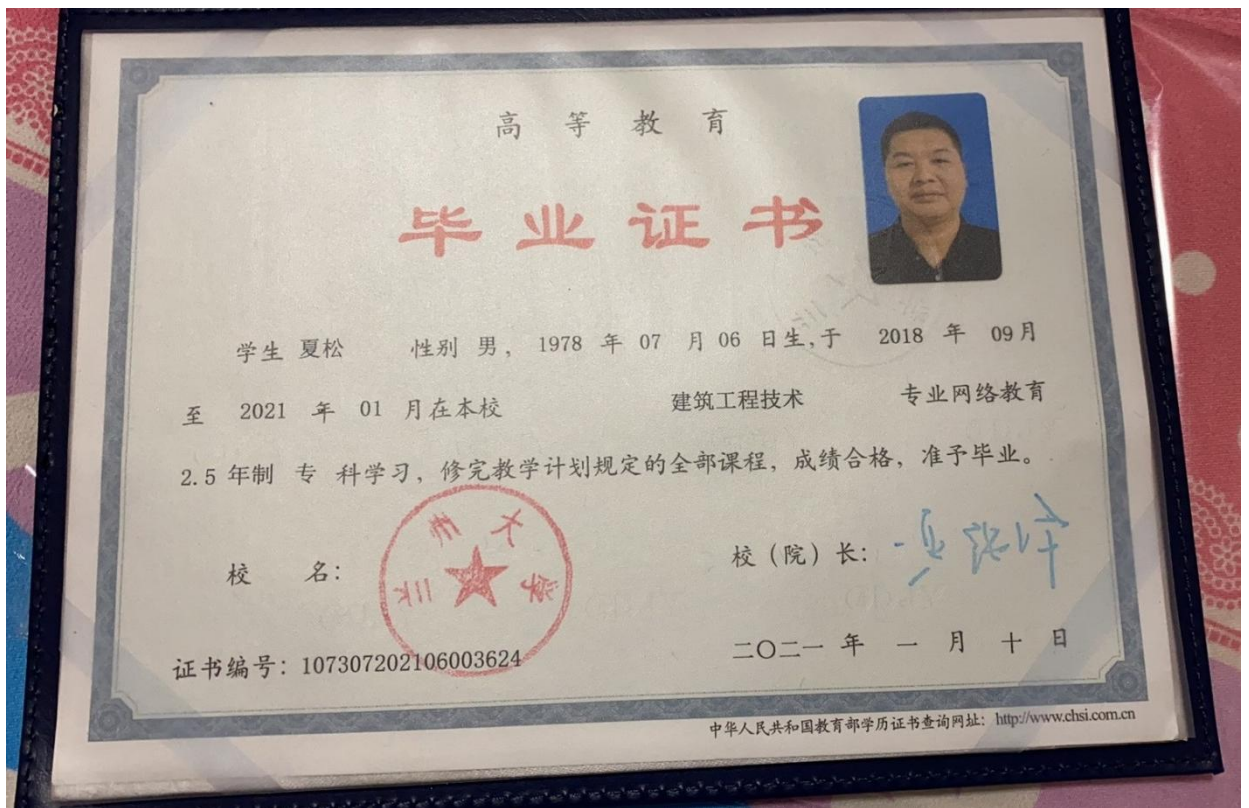 高等教育
毕业证书
学生 夏松 性别 男, 1978 年 07 月 06 日生,于 2018 年 09月
至 2021 年 01 月在本校 建筑工程技术 专业网络教育
2.5 年制 专 科学习, 修完教学计划规定的全部课程, 成绩合格, 准予毕业。
校 名:
大学
校（院）长:
证书编号: 107307202106003624
二〇二一 年 一 月 十 日
中华人民共和国教育部学历证书查询网址: http://www.chsi.com.cn